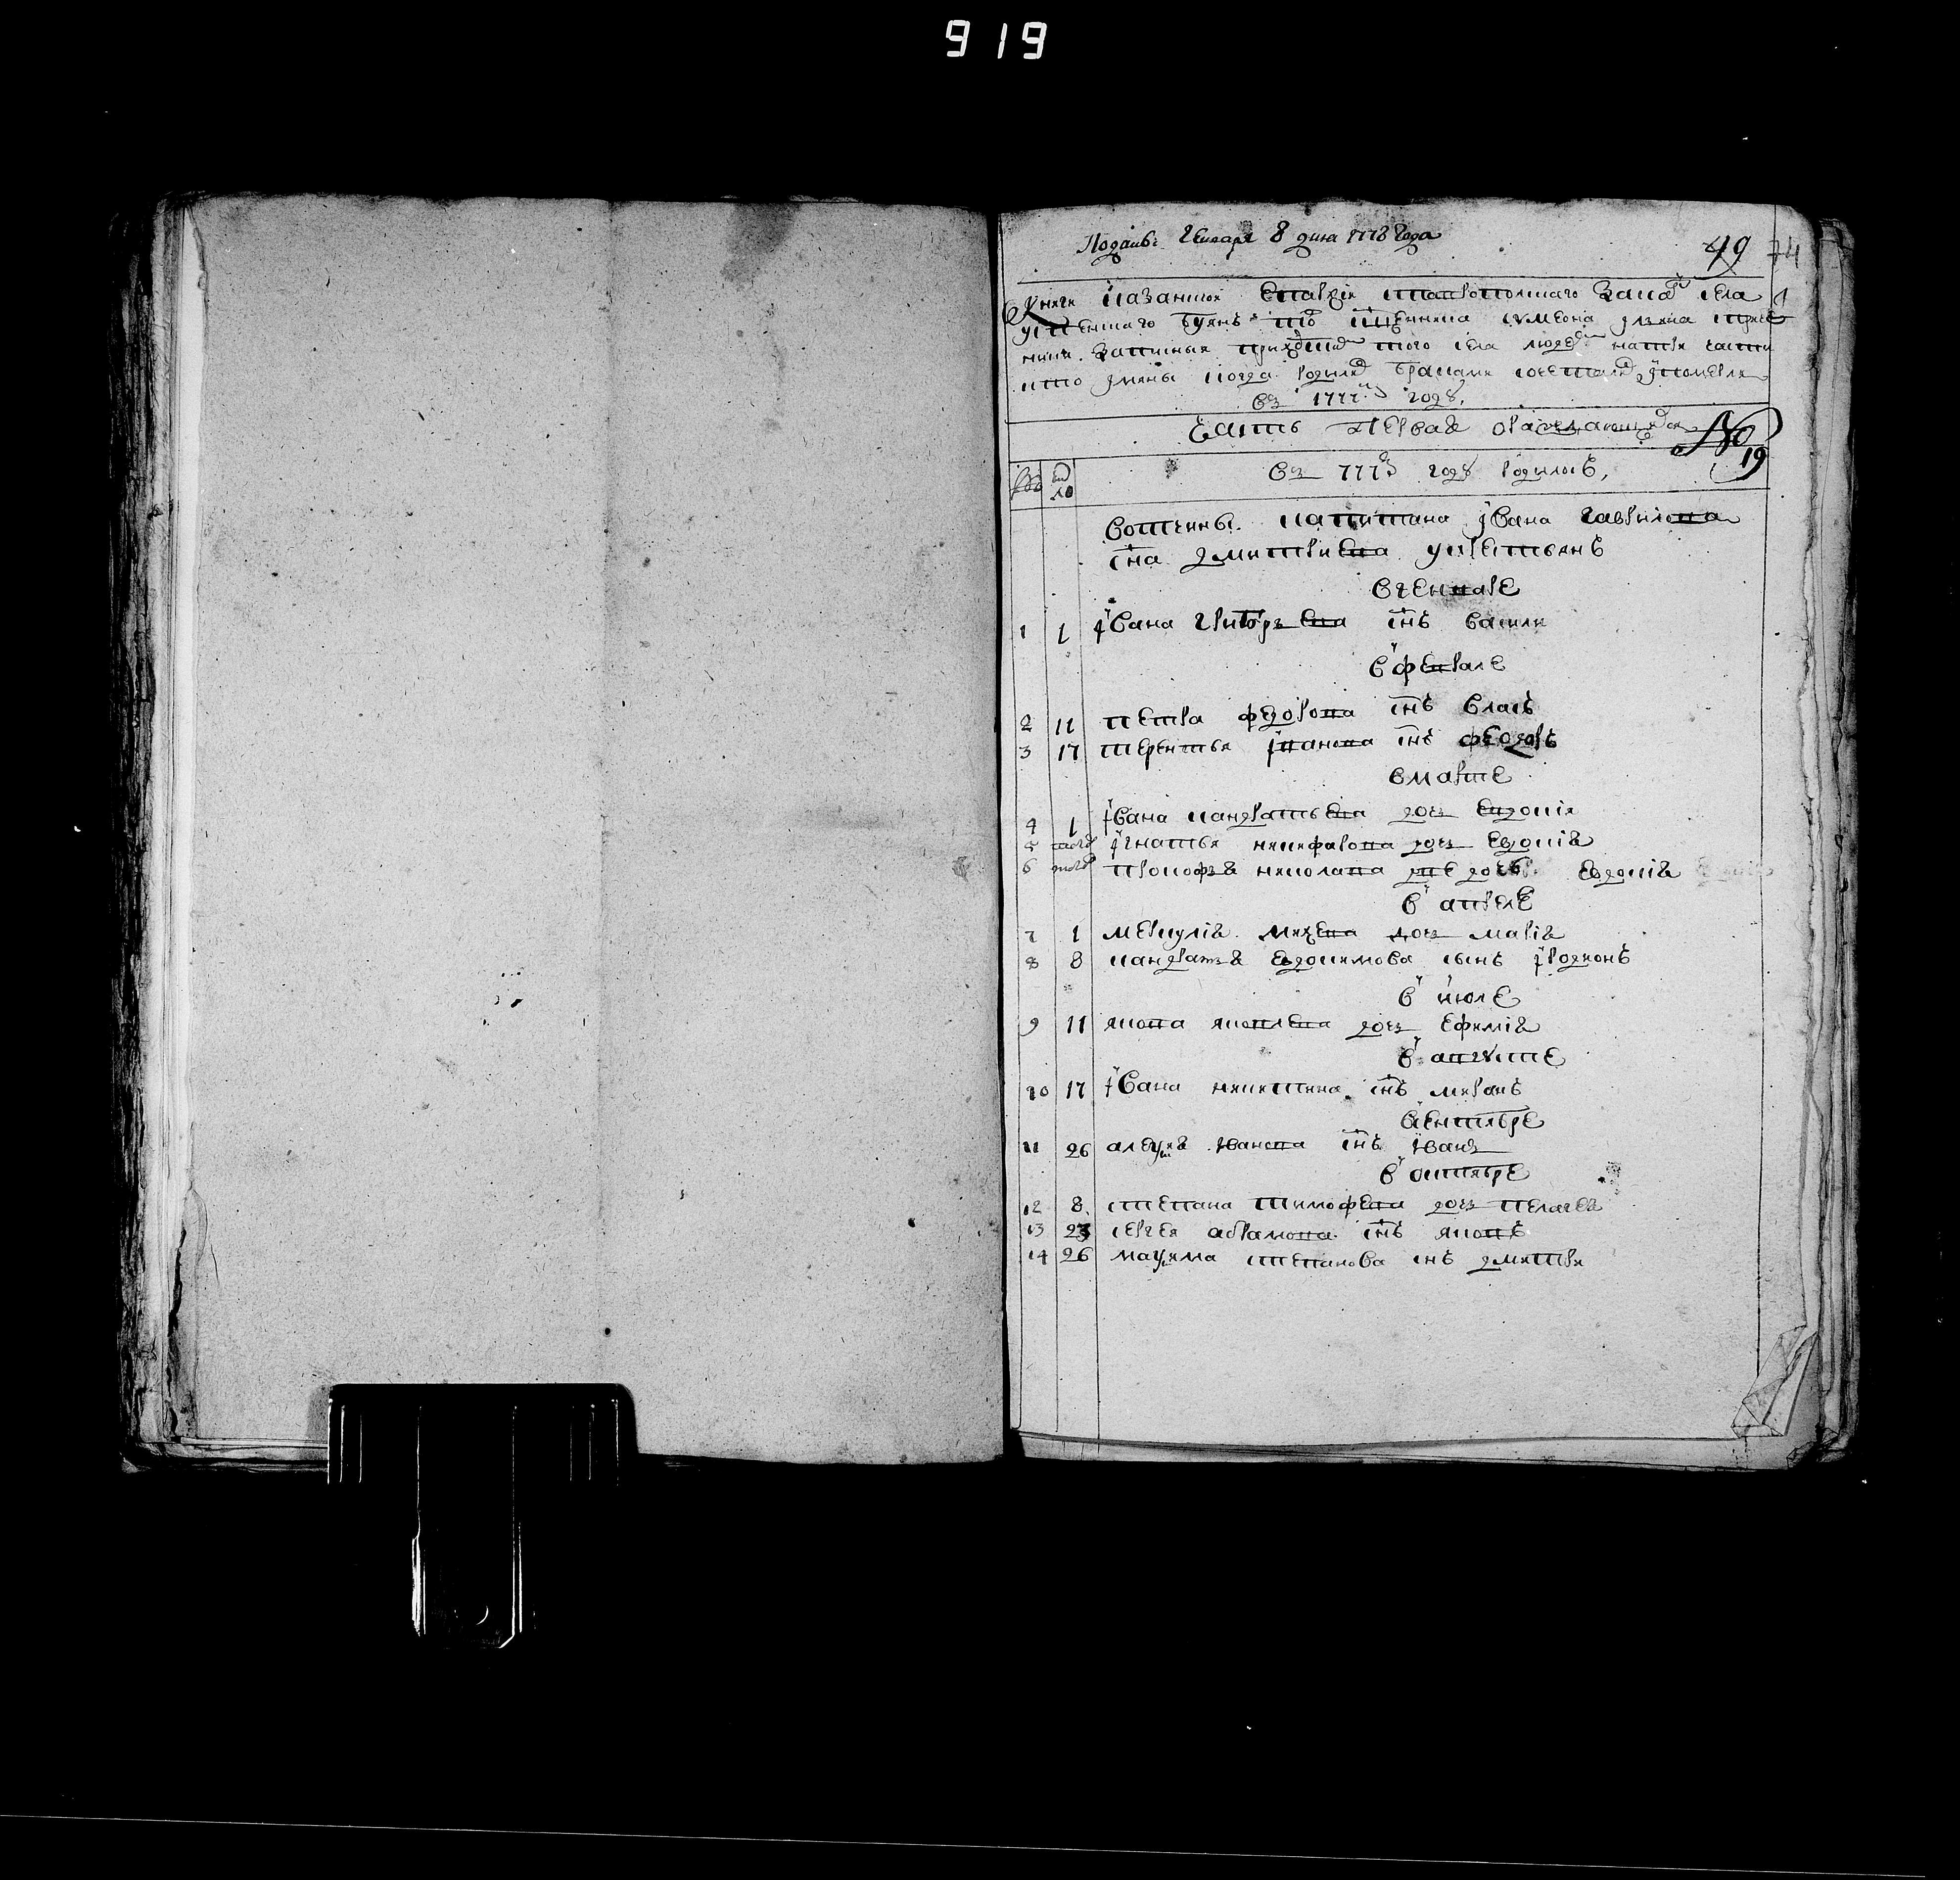 919
Подано Генваря 8 дня 1778 года
49 74
Книги казанской епархии ставропольнаго заказу села
Успенскаго буянъ тожъ священника сумеона
записныя приходскихъ того села людей на три части
кто имяны когда родились браками сочетались и померли
въ 1777 годѣ,
Часть первая о раждающихся
№ 19
Въ 777 годѣ родилось,
число
вотчины капитана Ивана гаврилова
сна дмитриева крестьянъ
в генваре
1 1 Ивана григорьева снъ василий
в феврале
2 11 петра федорова снъ власъ
3 17 терентья Иванова снъ федоръ
в марте
4 1 Ивана кандратьева дочь евдокия
5 тогож Игнатья никифорова дочь евдокия
6 тогож прокофья николаева дочь Евдокия
в апреле
7 1 меркулия дочь мария
8 8 кандратья евдокимова сынъ Иродионъ
в июле
9 11 якова яковлева дочь ефимия
в августе
10 17 Ивана никитина снъ миронъ
в сентябре
11 26 алексея Иванова снъ Иванъ
в октябре
12 8 степана тимофева дочь пелагея
13 23 сергея абрамова снъ яковъ
14 26 максима степанова снъ дмитри